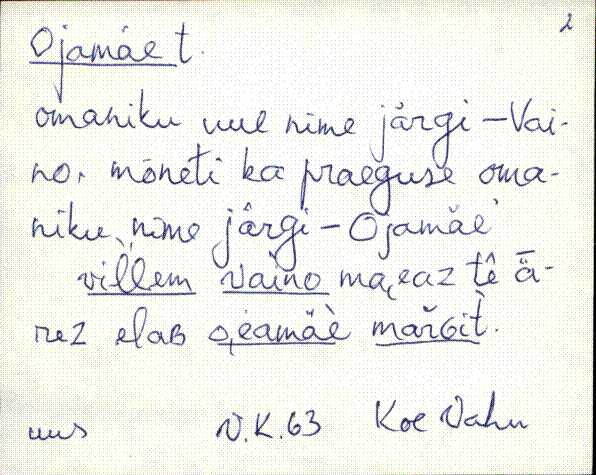 2
Ojamäe t.
omaniku uue nime järgi – Vai-
no, mõneti ka praeguse oma-
niku nime järgi – Ojamäe
vil̀lem vaìno ma,eaz tê ǟ-
rez elaʙ o,eamäè maŕGit̀.
uus V.K. 63 Koe Vahu